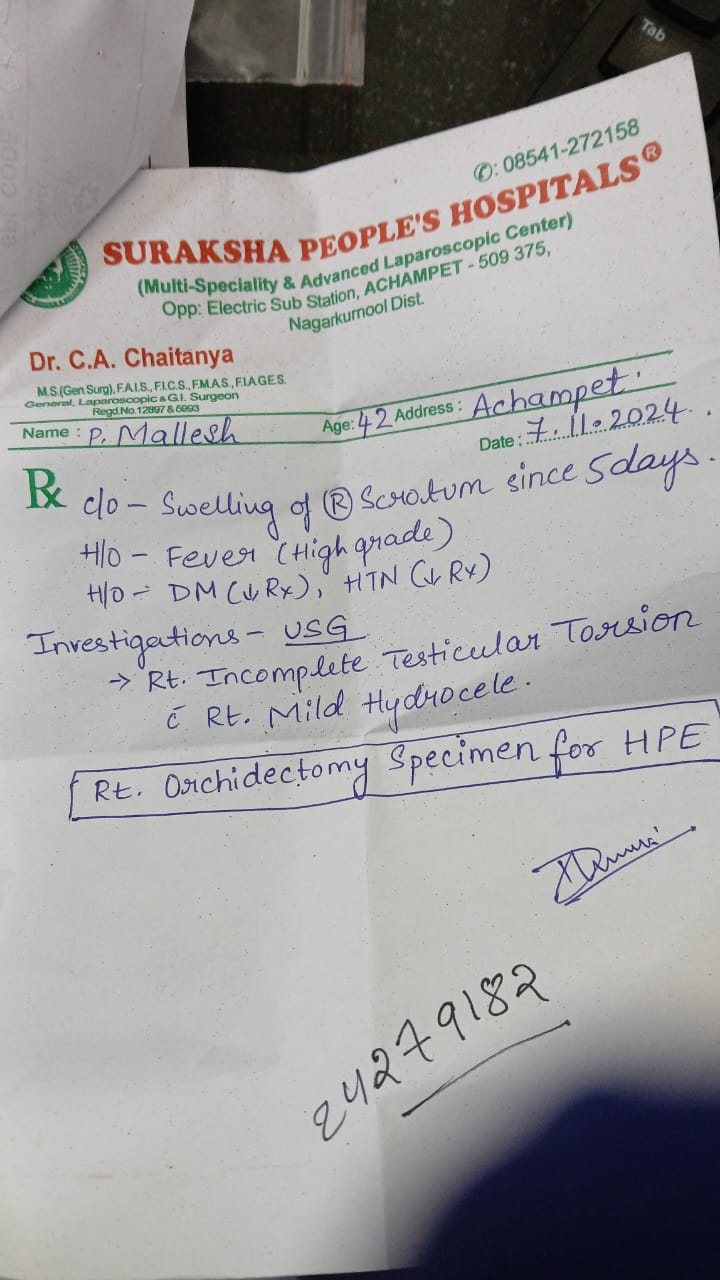 Tab
✆: 08541-272158
SURAKSHA PEOPLE'S HOSPITALS®
(Multi-Speciality & Advanced Laparoscopic Center)
Opp: Electric Sub Station, ACHAMPET - 509 375,
Nagarkurnool Dist.
Dr. C.A. Chaitanya
M.S.(Gen.Surg), F.A.I.S., F.I.C.S., F.M.A.S., F.I.A.G.E.S.
General, Laparoscopic & G.I. Surgeon
Regd.No.12897 & 6993
Name : P. Mallesh Age: 42 Address : Achampet.
Date : 7.11.2024.
Rx c/o - Swelling of Ⓡ Scrotum since 5 days.
H/O - Fever (High grade)
H/O - DM (↓ Rx), HTN (↓ Rx)
Investigations - USG
→ Rt. Incomplete Testicular Torsion
c̄ Rt. Mild Hydrocele.
Rt. Orchidectomy Specimen for HPE
24279182